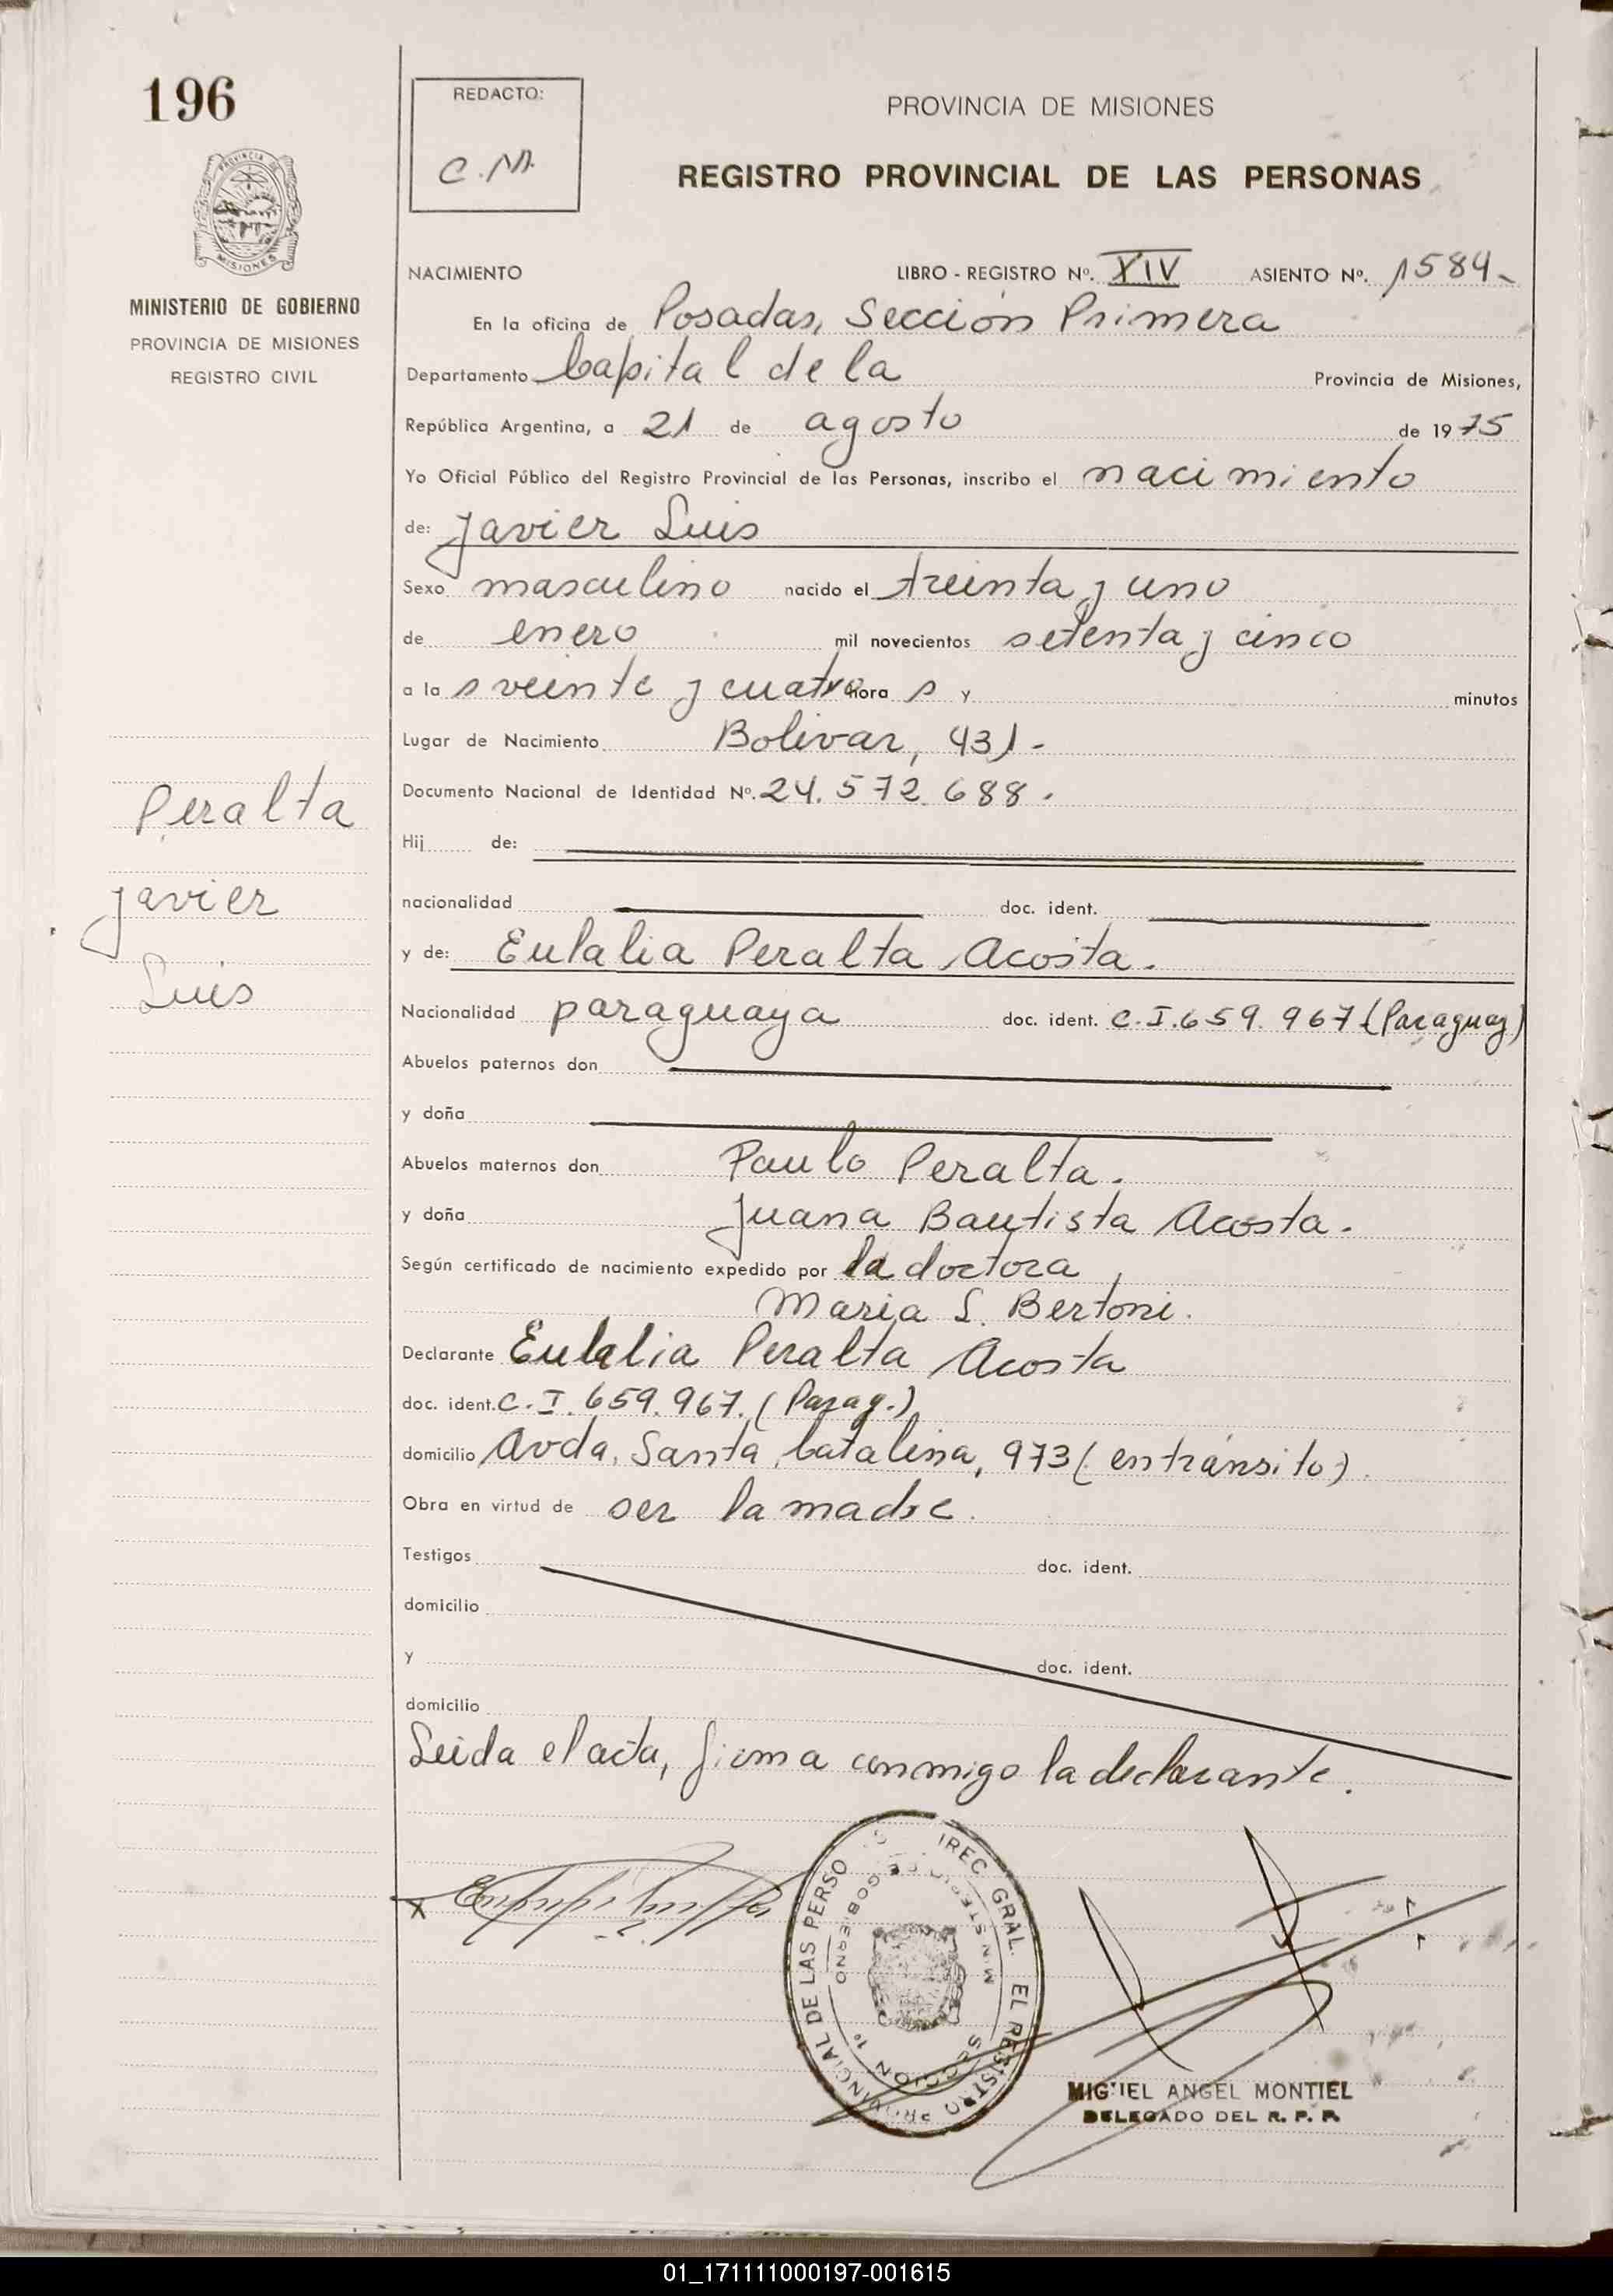 196
REDACTO:
C.M.
PROVINCIA DE MISIONES
REGISTRO PROVINCIAL DE LAS PERSONAS
PROVINCIA DE
MISIONES
MINISTERIO DE GOBIERNO
PROVINCIA DE MISIONES
REGISTRO CIVIL
NACIMIENTO LIBRO - REGISTRO Nº. XIV ASIENTO Nº. 1584-
En la oficina de Posadas, Sección Primera
Departamento Capital de la Provincia de Misiones,
República Argentina, a 21 de agosto de 1975
Yo Oficial Público del Registro Provincial de las Personas, inscribo el nacimiento
de: Javier Luis
Sexo masculino nacido el treinta y uno
de enero mil novecientos setenta y cinco
a la s veinte y cuatro hora s y minutos
Lugar de Nacimiento Bolivar, 431-
Documento Nacional de Identidad Nº. 24.572.688.
Hij de:
nacionalidad doc. ident.
y de: Eulalia Peralta Acosta.
Nacionalidad paraguaya doc. ident. C.I. 659.967 (Paraguay)
Abuelos paternos don
y doña
Abuelos maternos don Paulo Peralta.
y doña Juana Bautista Acosta.
Según certificado de nacimiento expedido por la doctora
Maria S. Bertoni.
Declarante Eulalia Peralta Acosta
doc. ident. C.I. 659.967. (Parag.)
domicilio Avda. Santa Catalina, 973 (en tránsito).
Obra en virtud de ser la madre.
Testigos doc. ident.
domicilio
y doc. ident.
domicilio
Leida el acta, firma conmigo la declarante.
Peralta
Javier
Luis
X
DIREC. GRAL. EL REGISTRO PROVINCIAL DE LAS PERSO
MINISTERIO GOBIERNO
SECCION 1º
MIGUEL ANGEL MONTIEL
DELEGADO DEL R. P. P.
01_171111000197-001615